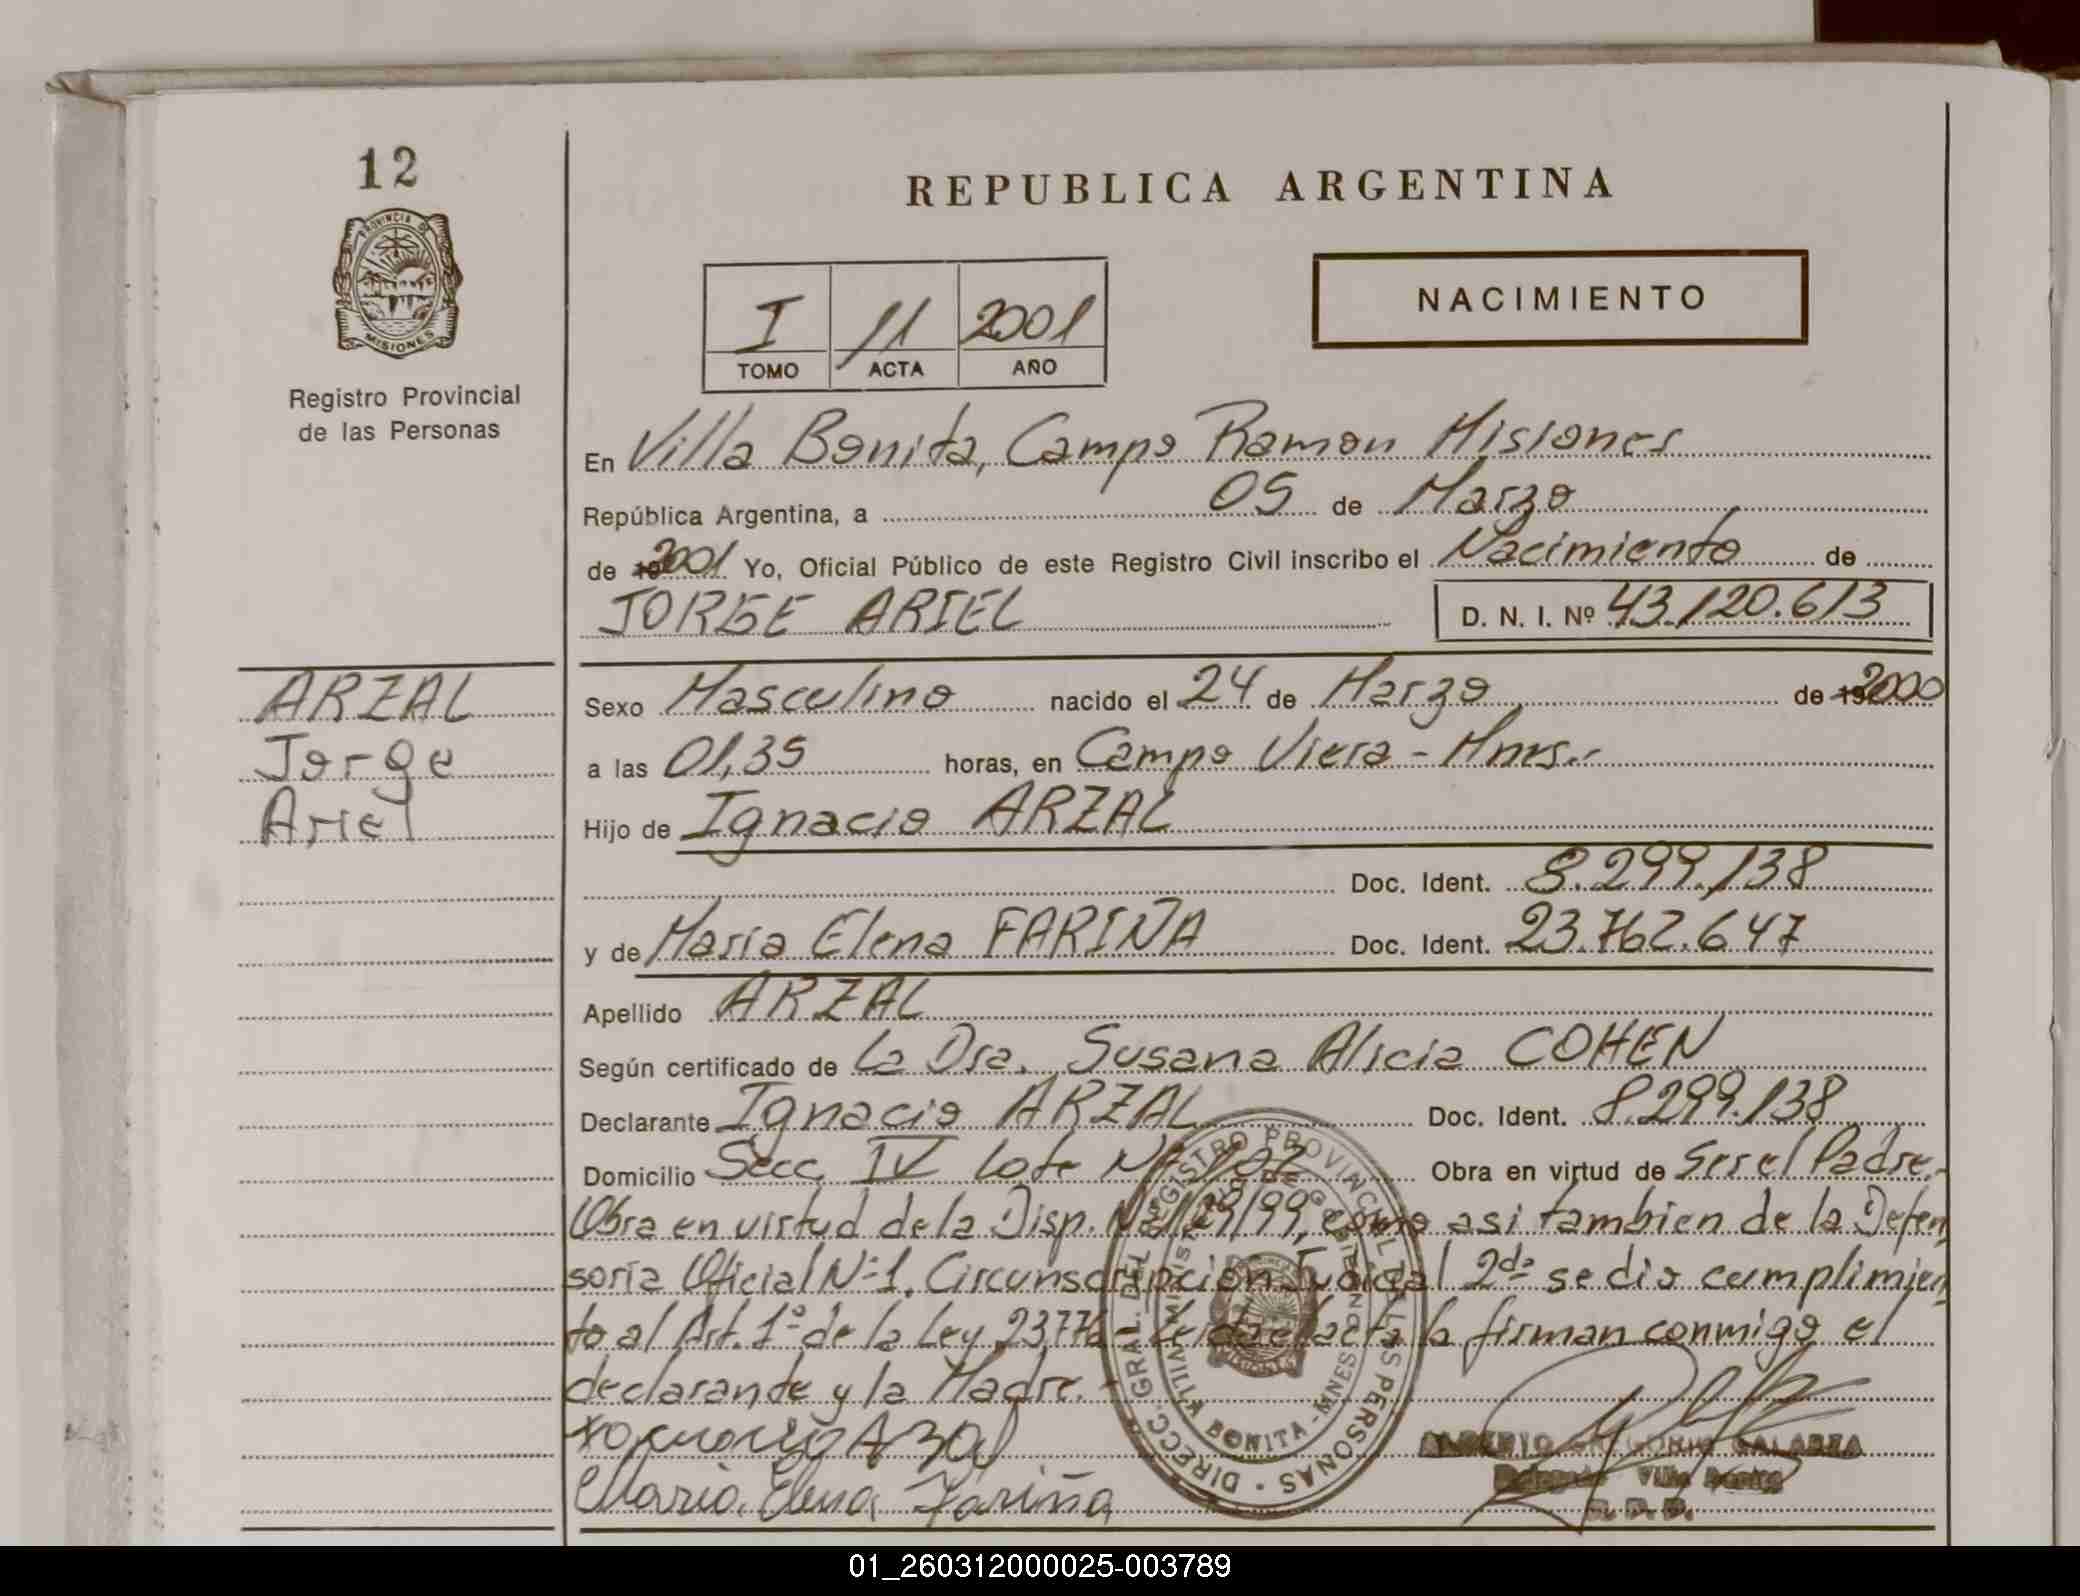 12
REPUBLICA ARGENTINA
PROVINCIA DE
MISIONES
Registro Provincial
de las Personas
I 11 2001
TOMO ACTA AÑO
NACIMIENTO
En Villa Bonita, Campo Ramon Misiones
República Argentina, a 05 de Marzo
de 2001 Yo, Oficial Público de este Registro Civil inscribo el Nacimiento de
JORGE ARIEL D. N. I. Nº 43.120.613
ARZAL
Jorge
Ariel
Sexo Masculino nacido el 24 de Marzo de 2000
a las 01,35 horas, en Campo Viera - Mnes.-
Hijo de Ignacio ARZAL
Doc. Ident. 8.299.138
y de Maria Elena FARIÑA Doc. Ident. 23.762.647
Apellido ARZAL
Según certificado de La Dra. Susana Alicia COHEN
Declarante Ignacio ARZAL Doc. Ident. 8.299.138
Domicilio Secc. IV Lote Nº Obra en virtud de Ser el Padre.-
Obra en virtud de la Disp. Nº /99, como asi tambien de la Defen
soria Oficial Nº 1, Circunscripcion Judicial 2da se dio cumplimien
to al Art. 1º de la Ley 23776 - Leida el acta la firman conmigo el
declarante y la Madre.
Maria Elena Fariña
DIRECC. GRAL. DEL REGISTRO PROVINCIAL DE LAS PERSONAS
VILLA BONITA - MNES
GALARZA
Villa Bonita
01_260312000025-003789